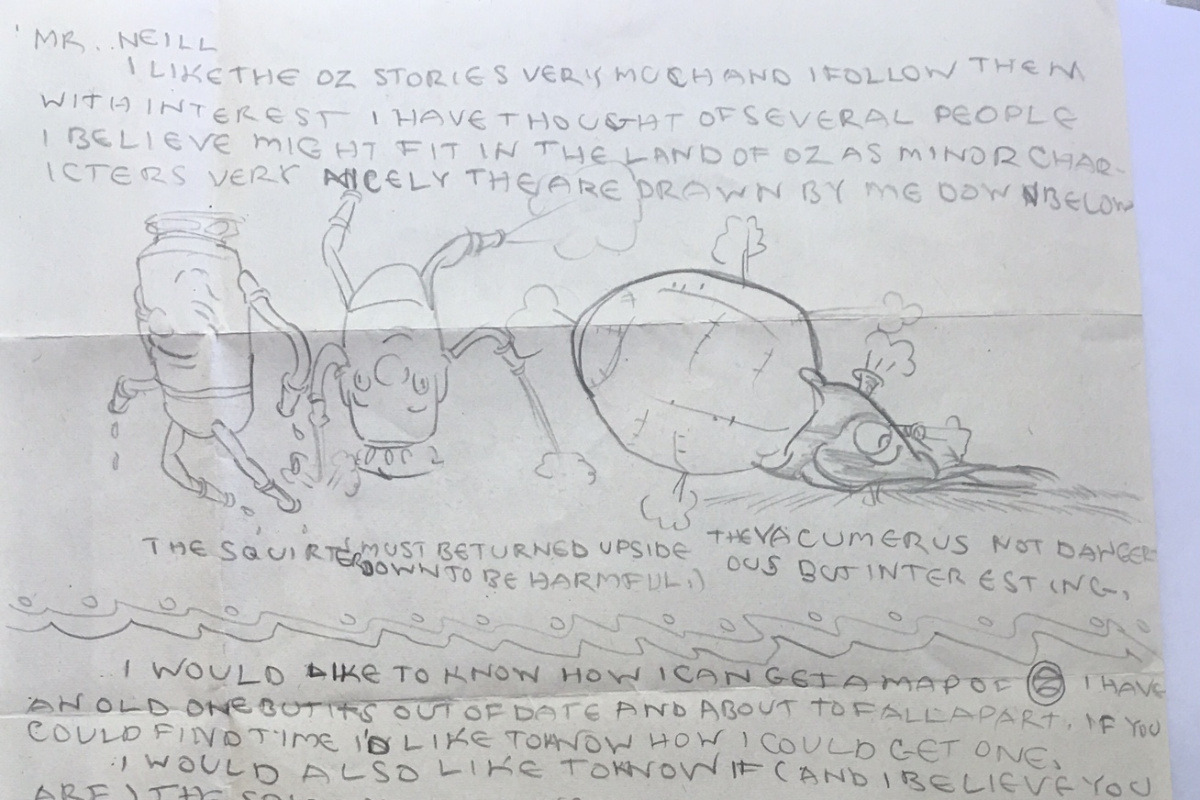 MR. NEILL
I LIKE THE OZ STORIES VERY MUCH AND I FOLLOW THEM
WITH INTEREST I HAVE THOUGHT OF SEVERAL PEOPLE
I BELIEVE MIGHT FIT IN THE LAND OF OZ AS MINOR CHAR-
ICTERS VERY NICELY THE ARE DRAWN BY ME DOWN BELOW
THE SQUIRTER (MUST BE TURNED UPSIDE
DOWN TO BE HARMFUL.)
THE VACUMERUS NOT DANGER-
OUS BUT INTERESTING.
I WOULD LIKE TO KNOW HOW I CAN GET A MAP OF OZ I HAVE
AN OLD ONE BUT ITS OUT OF DATE AND ABOUT TO FALL APART. IF YOU
COULD FIND TIME I'D LIKE TO KNOW HOW I COULD GET ONE.
I WOULD ALSO LIKE TO KNOW IF (AND I BELIEVE YOU
ARE) THE